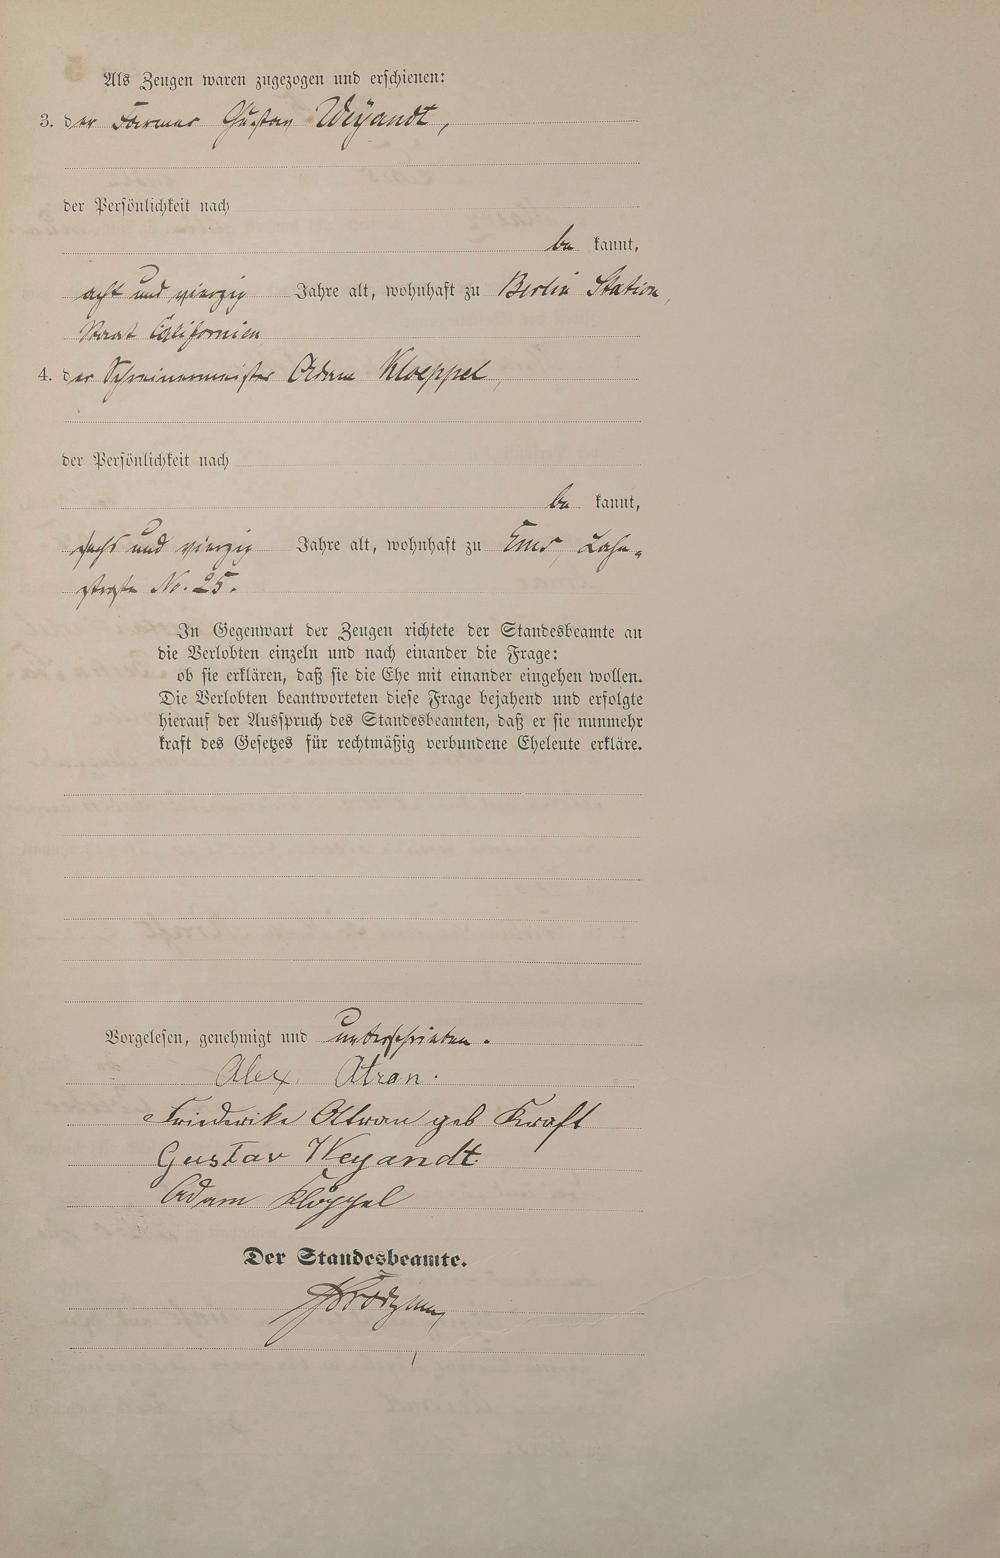 Als Zeugen waren zugezogen und erschienen:
3. der Farmer Gustav Weyandt,
der Persönlichkeit nach
be kannt,
acht und vierzig Jahre alt, wohnhaft zu Berlin Station,
Staat Californien
4. der Schreinermeister Adam Kloeppel,
der Persönlichkeit nach
be kannt,
sechs und vierzig Jahre alt, wohnhaft zu Ems, Lahn-
straße No. 25.
In Gegenwart der Zeugen richtete der Standesbeamte an
die Verlobten einzeln und nach einander die Frage:
ob sie erklären, daß sie die Ehe mit einander eingehen wollen.
Die Verlobten beantworteten diese Frage bejahend und erfolgte
hierauf der Ausspruch des Standesbeamten, daß er sie nunmehr
kraft des Gesetzes für rechtmäßig verbundene Eheleute erkläre.
Vorgelesen, genehmigt und unterschrieben.
Alex. Atran.
Friederike Attran geb Kraft
Gustav Weyandt
Adam Klöppel
Der Standesbeamte.